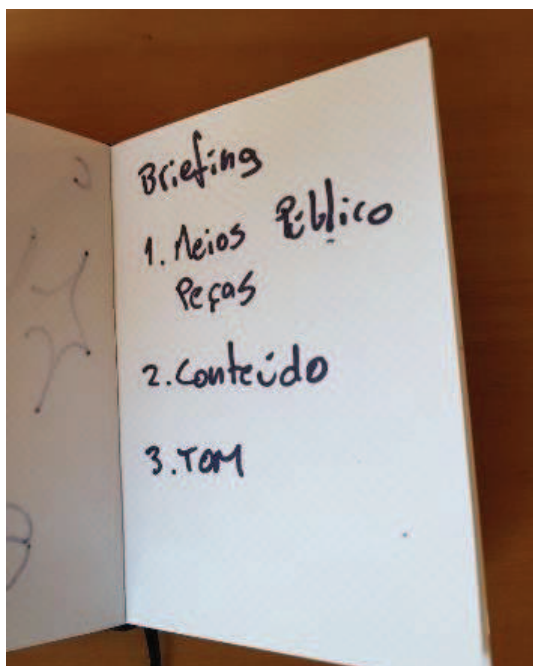 Briefing
1. Meios Público
Peças
2. Conteúdo
3. TOM